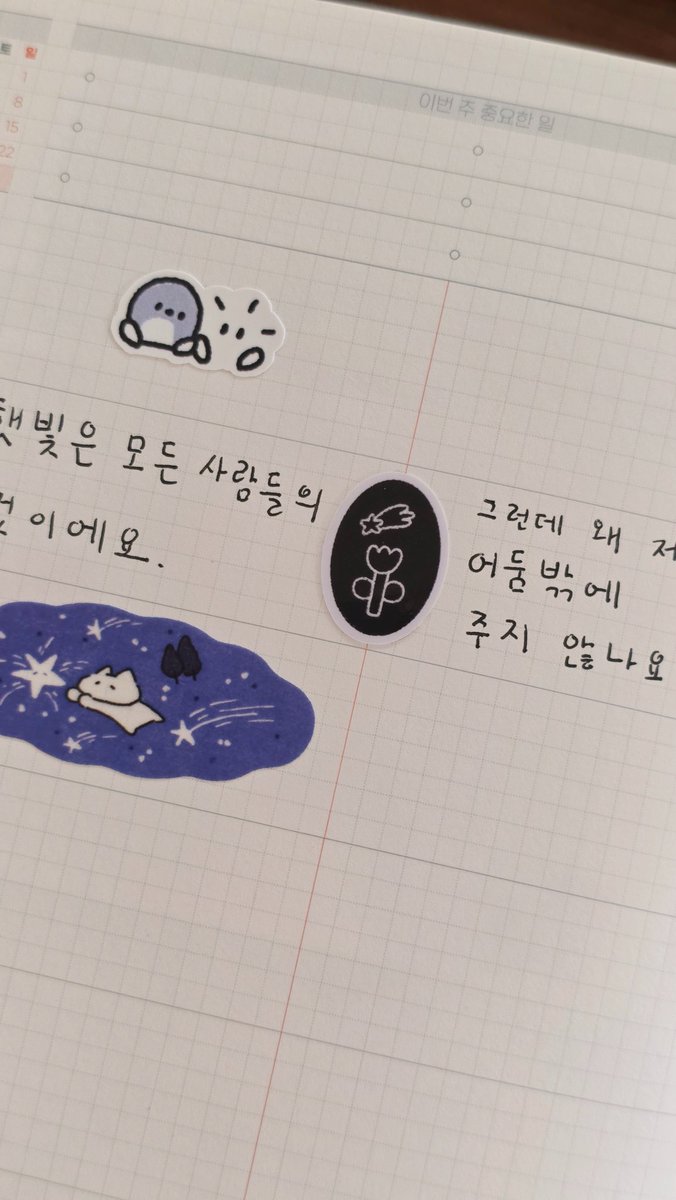 토 일
1
8
15
22
이번 주 중요한 일
햇빛은 모든 사람들의
것이에요.
그런데 왜 저
어둠밖에
주지 않나요